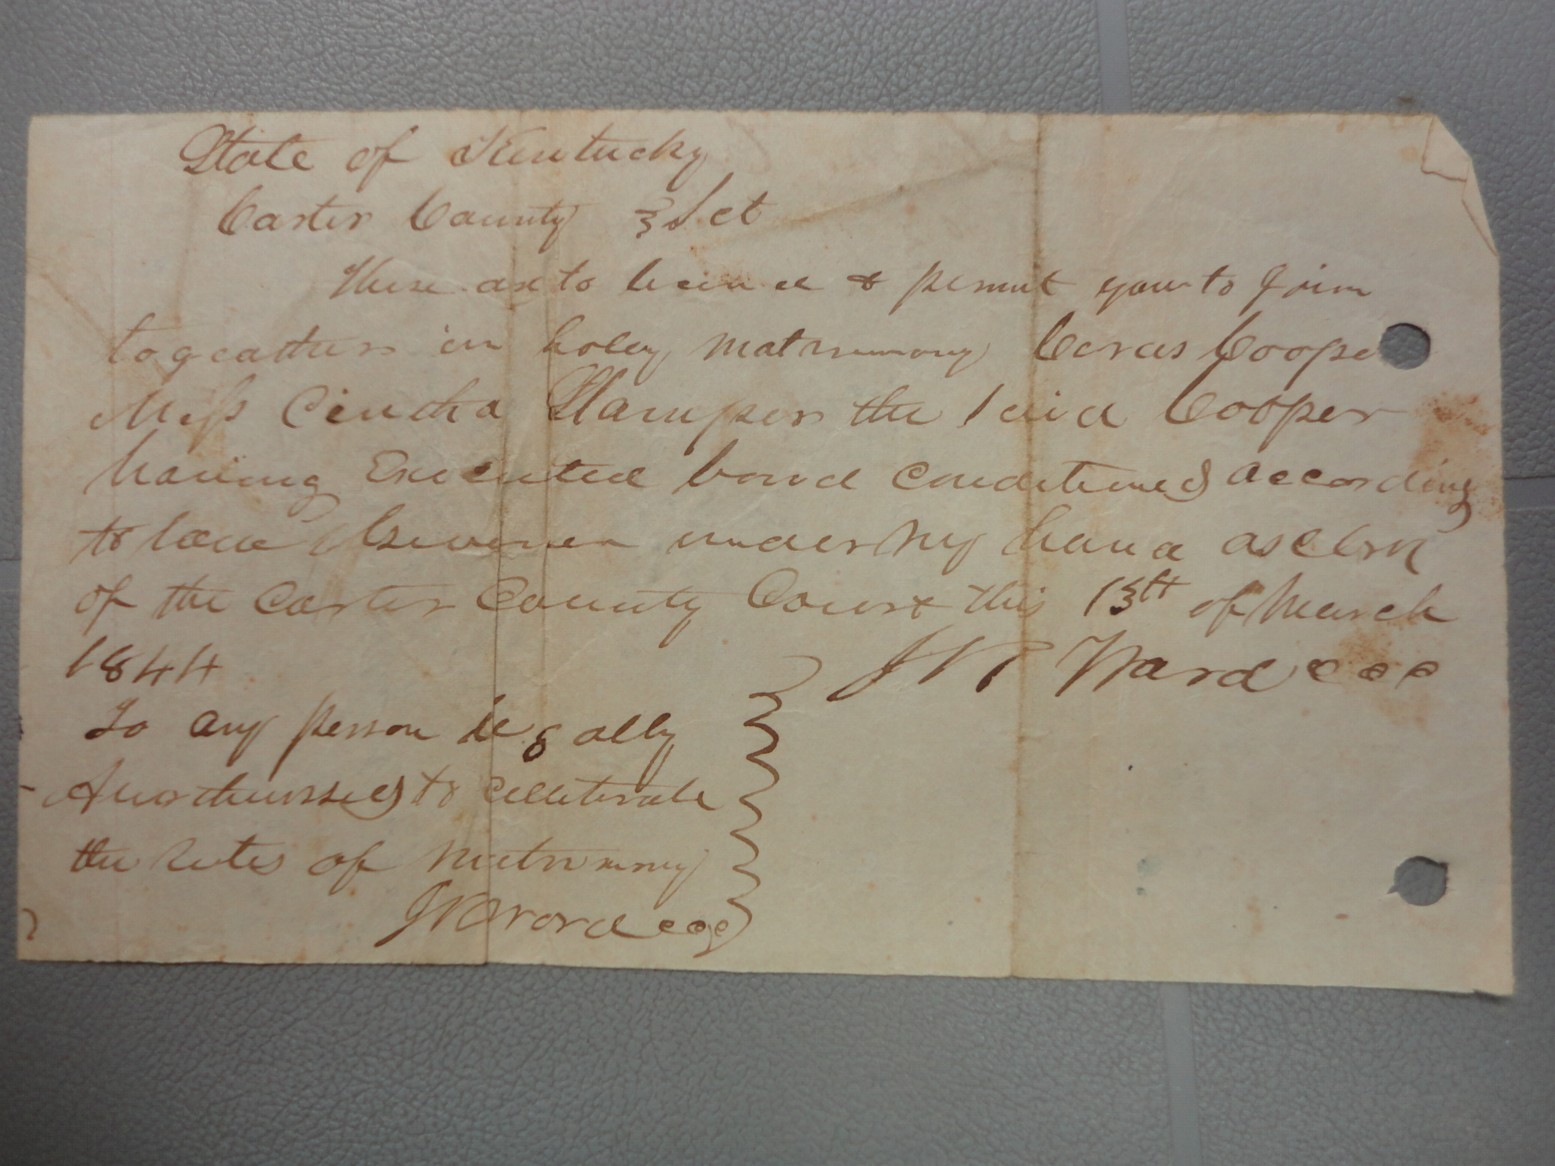 State of Kentucky
Carter County } Sct
These are to licince & permit you to Join
togeather in holey matrimony Cooper
Miss Stamper the said Cooper
having Executed bond conditioned according
to law Given under my hand as clerk
of the Carter County Court this 13th of March
1844 Ward ccc
To any person legally
to
the rites of matrimony
Ward ccc